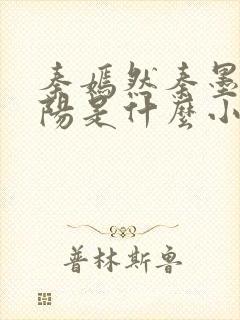 秦嫣然秦墨
陽是什麼小
普林斯魯